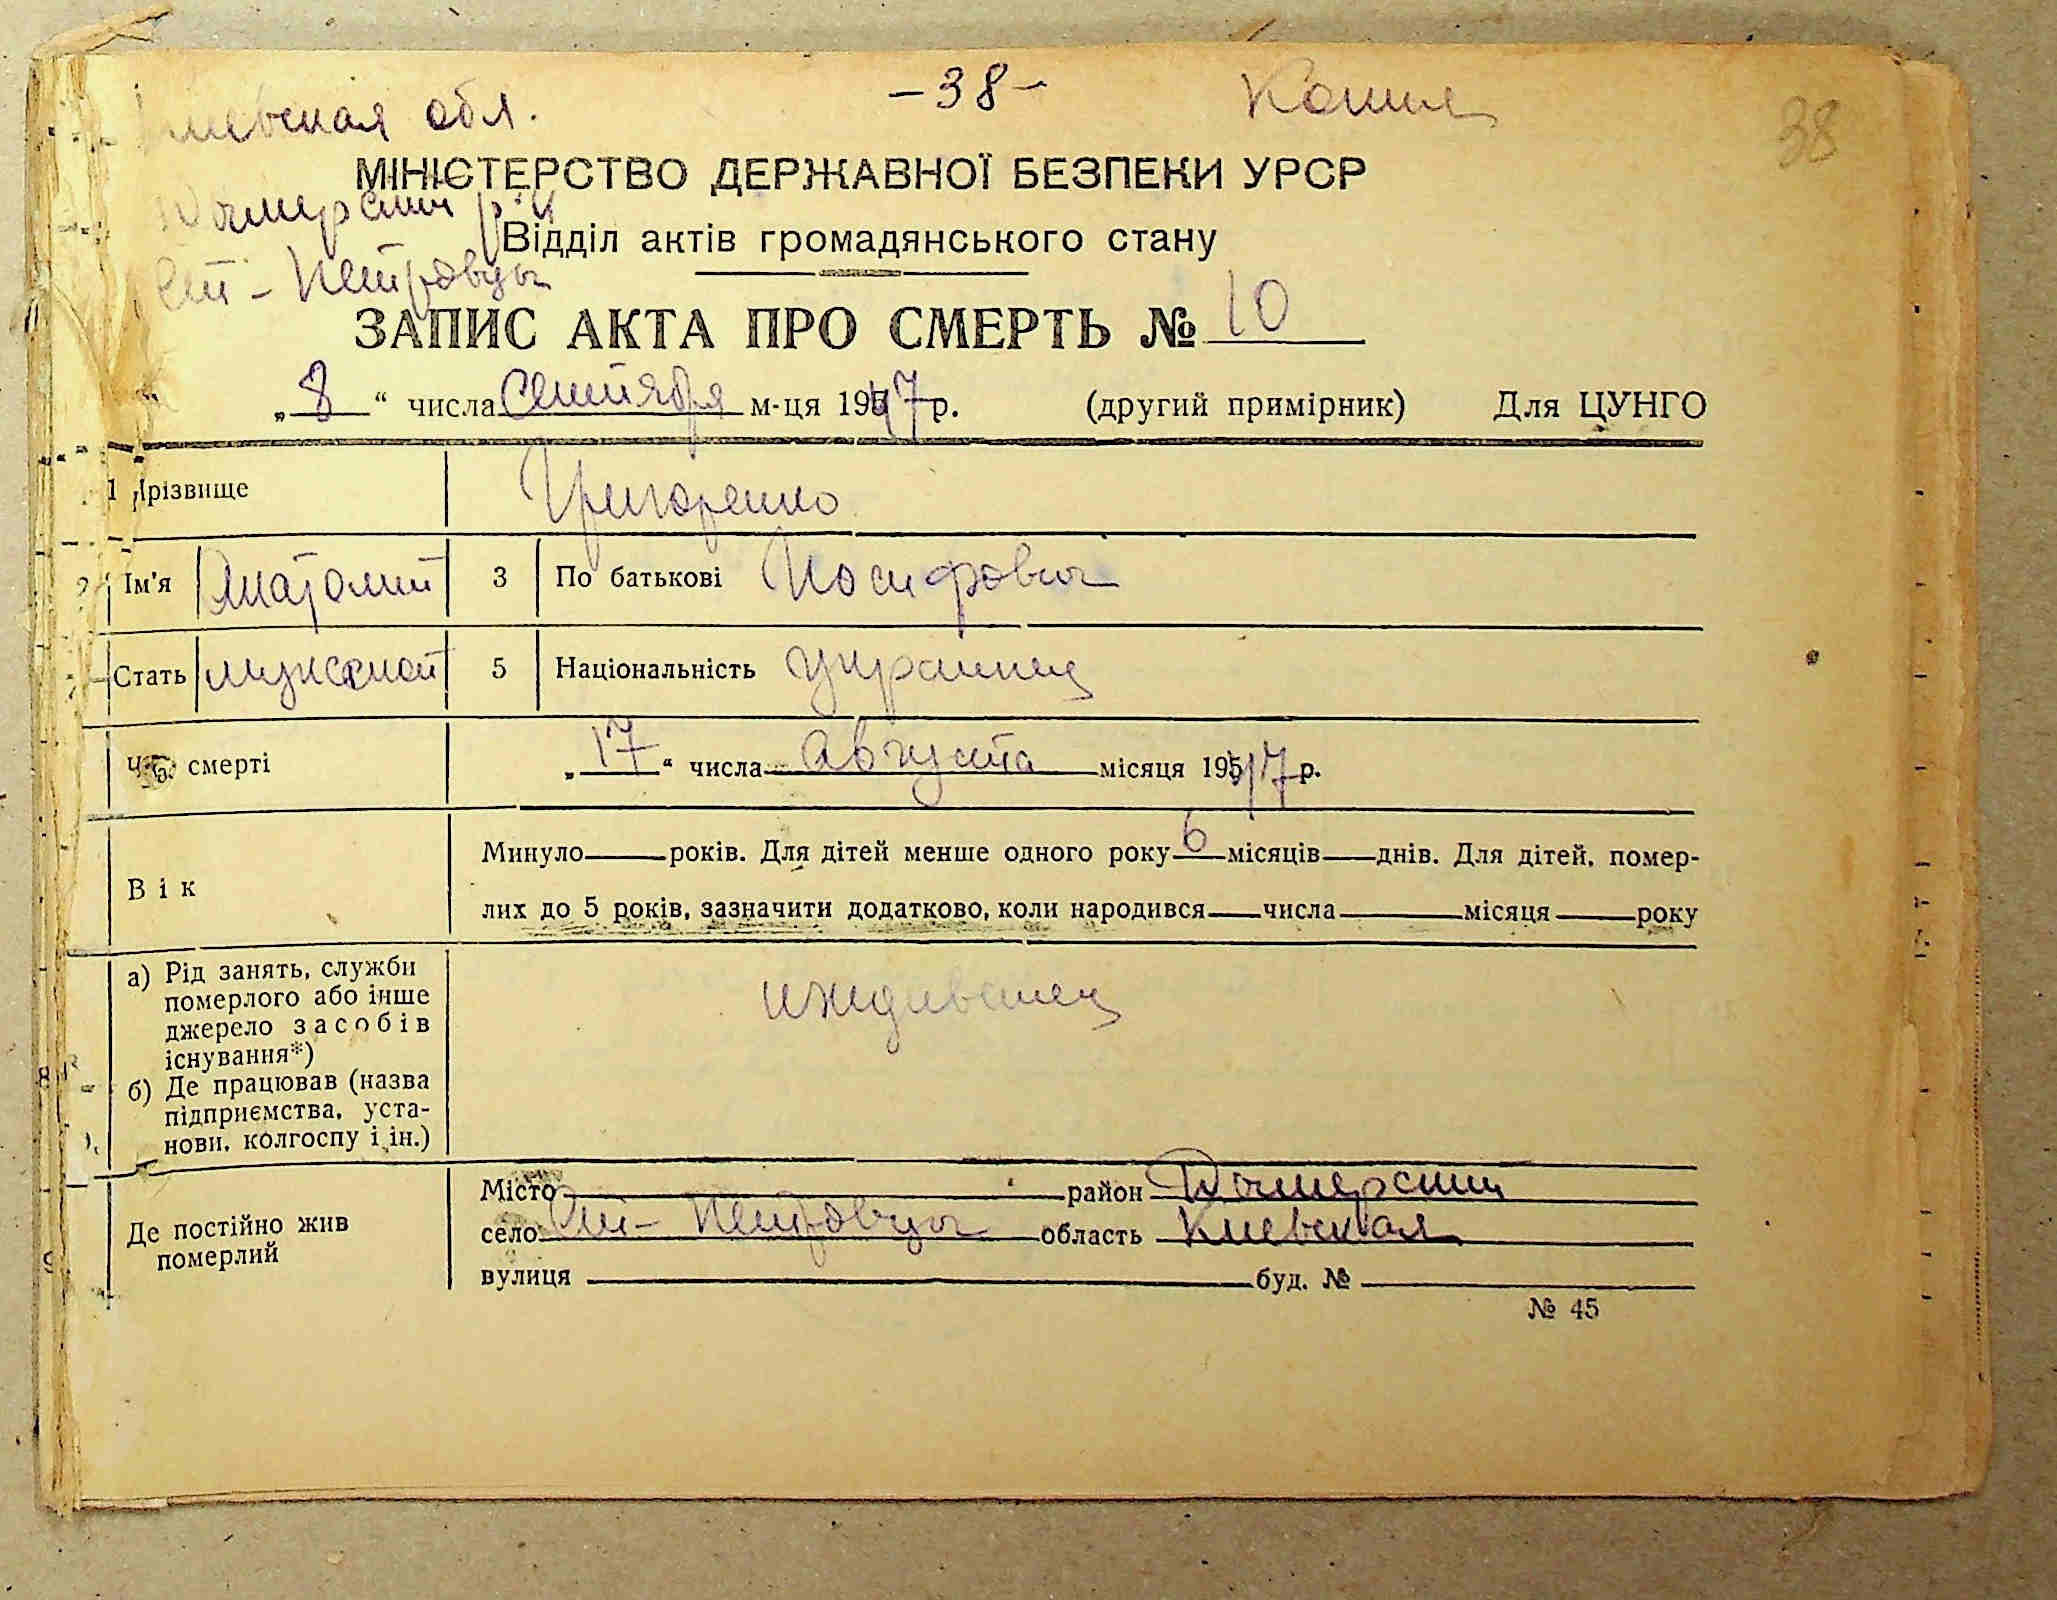 –38– Копия 38
Киевская обл.
МІНІСТЕРСТВО ДЕРЖАВНОЇ БЕЗПЕКИ УРСР
Дымерский р-н
Відділ актів громадянського стану
Ст-Петровцы
ЗАПИС АКТА ПРО СМЕРТЬ № 10
„ 8 “ числа Сентября м-ця 1947 р. (другий примірник) Для ЦУНГО
1 Прізвище Григоренко
2 Ім'я Анатолий 3 По батькові Иосифович
Стать мужской 5 Національність украинец
Час смерті „ 17 “ числа августа місяця 1947 р.
Вік
Минуло року років. Для дітей менше одного року 6 місяців днів. Для дітей, помер-
лих до 5 років, зазначити додатково, коли народився числа місяця року
а) Рід занять, служби
померлого або інше
джерело засобів
існування*)
иждивенец
б) Де працював (назва
підприємства, уста-
нови, колгоспу і ін.)
Де постійно жив
померлий
Місто район Дымерский
село Ст-Петровцы область Киевская
вулиця буд. №
№ 45